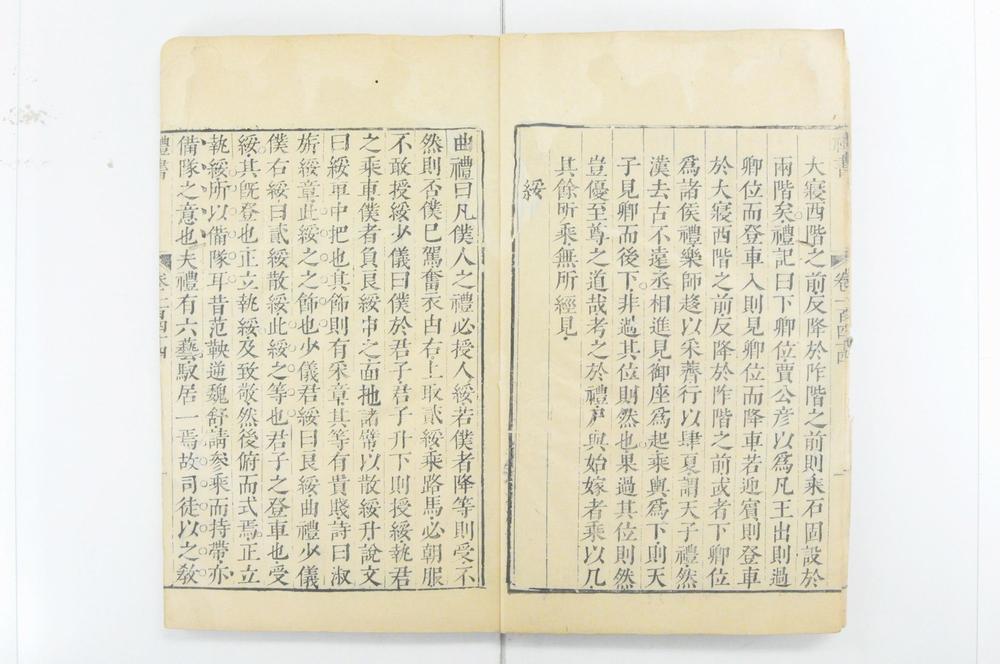 禮書
卷一百四十四
一
大寢西階之前反降於阼階之前則乘石固設於
兩階矣禮記曰下卿位賈公彦以爲凡王出則過
卿位而登車入則見卿位而降車若迎賓則登車
於大寢西階之前反降於阼階之前或者下卿位
爲諸侯禮樂師趍以采薺行以肆夏謂天子禮然
漢去古不遠丞相進見御座爲起乘輿爲下則天
子見卿而後下非過其位則然也果過其位則然
豈優至尊之道哉考之於禮尸與始嫁者乘以几
其餘所乘無所經見
綏
曲禮曰凡僕人之禮必授人綏若僕者降等則受不
然則否僕已駕奮衣由右上取貳綏乘路馬必朝服
不敢授綏少儀曰僕於君子君子升下則授綏執君
之乘車僕者負良綏申之面拖諸幦以散綏升說文
曰綏車中把也其飾則有采章其等有貴賤詩曰淑
旂綏章此綏之之飾也少儀君綏曰良綏曲禮少儀
僕右綏曰貳綏散綏此綏之等也君子之登車也受
綏其旣登也正立執綏及致敬然後俯而式焉正立
執綏所以備隊耳昔范鞅逆魏舒請參乘而持帶亦
備隊之意也夫禮有六藝馭居一焉故司徒以之敎
禮書
卷一百四十四
一